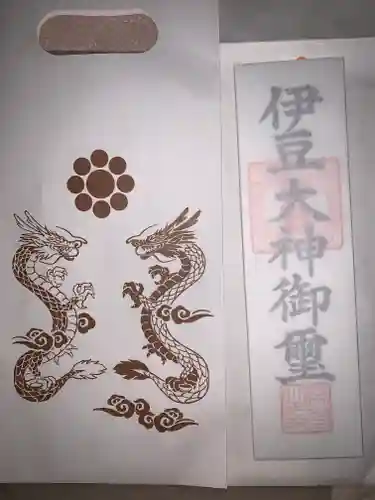 伊豆大神御璽